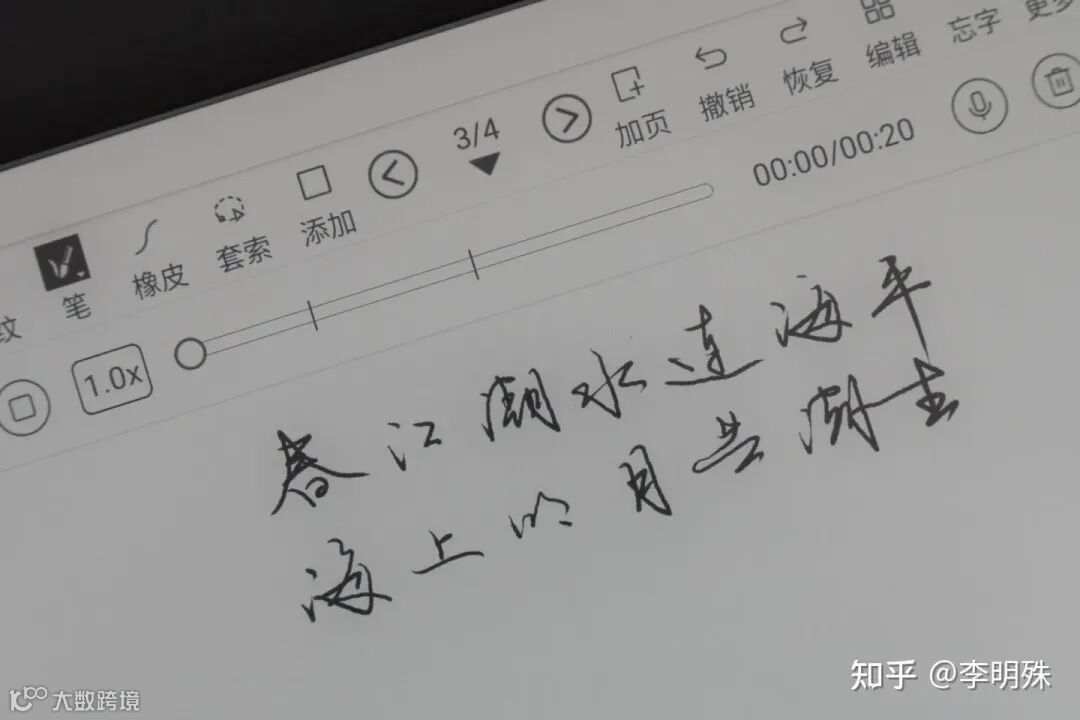 3/4
加页 撤销 恢复 编辑 忘字 更多
纹 笔 橡皮 套索 添加
1.0x
00:00/00:20
春江潮水连海平
海上明月共潮生
知乎 @李明殊
大数跨境